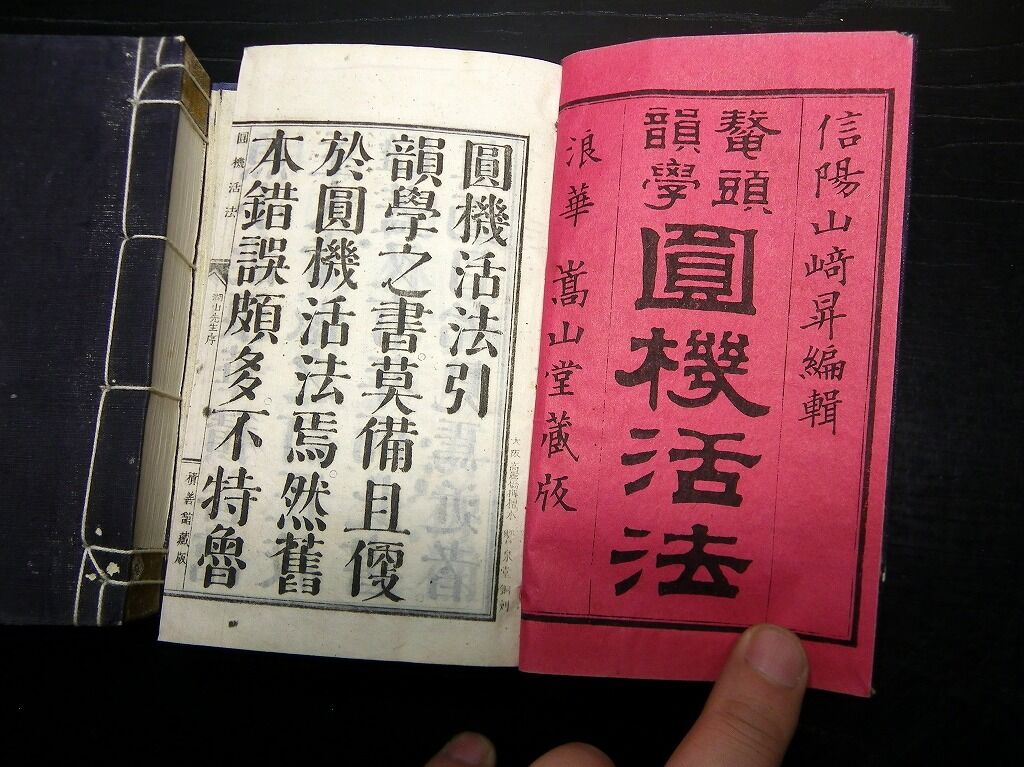 信陽山﨑昇編輯
鼇頭
韻學
圓機活法
浪華 嵩山堂蔵版
圓機活法引
韻學之書莫備且便
於圓機活法焉然舊
本錯誤頗多不特魯
圓機活法
積善舘蔵版